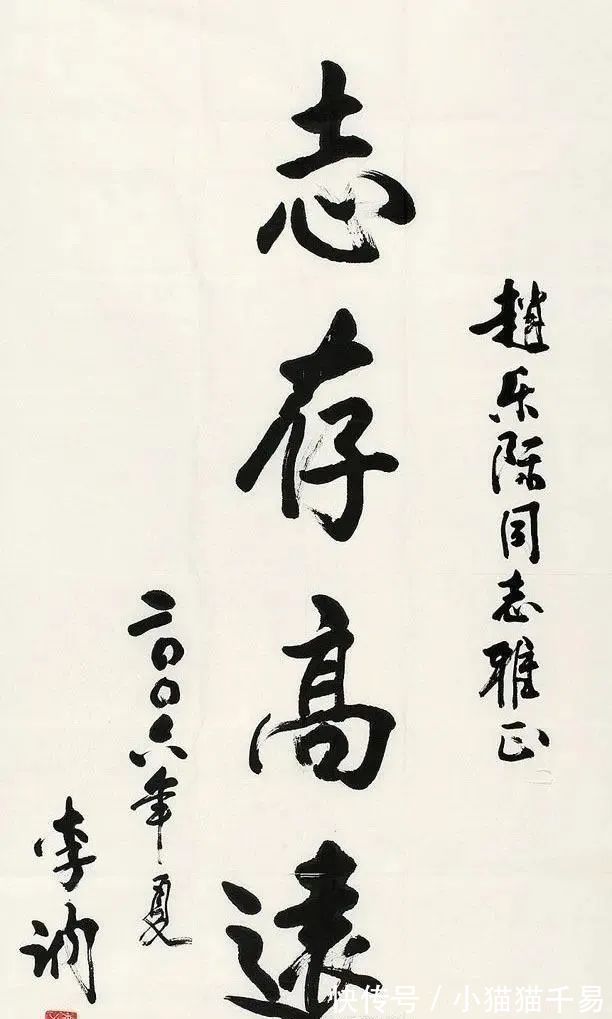 趙乐际同志雅正
志存高遠
二〇〇六年夏
李訥
快传号/小猫猫千易